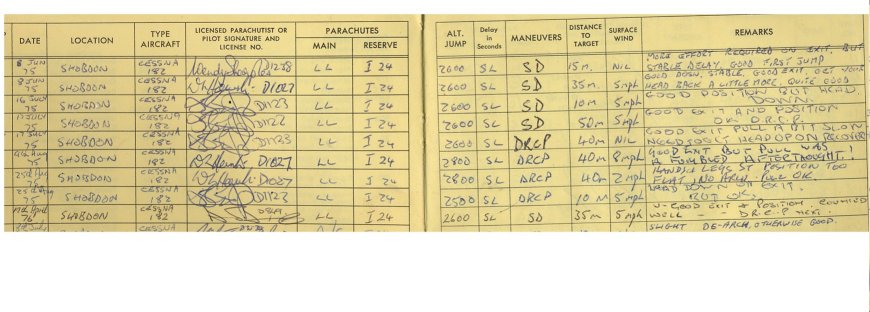 DATE LOCATION TYPE AIRCRAFT LICENSED PARACHUTIST OR PILOT SIGNATURE AND LICENSE NO. PARACHUTES MAIN RESERVE ALT. JUMP Delay in Seconds MANEUVERS DISTANCE TO TARGET SURFACE WIND REMARKS
8 JUN 75 SHOBDON CESSNA 182 D1238 LL I 24 2600 SL SD 15m. NIL MORE EFFORT REQUIRED ON EXIT, BUT STABLE DELAY, GOOD FIRST JUMP
8 JUN 75 SHOBDON CESSNA 182 D1027 LL I 24 2600 SL SD 35m. 5mph GOOD DOWN, STABLE, GOOD EXIT, GET YOUR HEAD BACK A LITTLE MORE, QUITE GOOD
16 July 75 SHOBDON CESSNA 182 D1123 LL I 24 2600 SL SD 10m 5mph GOOD POSITION BUT HEAD DOWN.
17 July 75 SHOBDON CESSNA 182 LL I 24 2600 SL SD 50m 5mph GOOD EXIT AND POSITION OK D.R.C.P.
17 July 75 SHOBDON CESSNA 182 D1123 LL I 24 2600 SL DRCP 40m NIL GOOD EXIT PULL A BIT SLOW
75 SHOBDON CESSNA 182 D1027 LL I 24 2800 SL DRCP 40m 8mph GOOD EXIT BUT PULL WAS A FUMBLED AFTERTHOUGHT!
75 SHOBDON CESSNA 182 D1027 LL I 24 2800 SL DRCP 40m 2mph LEGS ST POSITION TOO FLAT, NO ARCH. PULL OK.
75 SHOBDON CESSNA 182 D1123 LL I 24 2500 SL DRCP 10m 5mph HEAD DOWN ON EXIT, BUT OK.
76 SHOBDON CESSNA 182 LL I 24 2600 SL SD 35m 5mph V-GOOD EXIT & POSITION, COUNTED WELL - D.R.C.P NEXT.
CESSNA SLIGHT DE-ARCH, OTHERWISE GOOD.